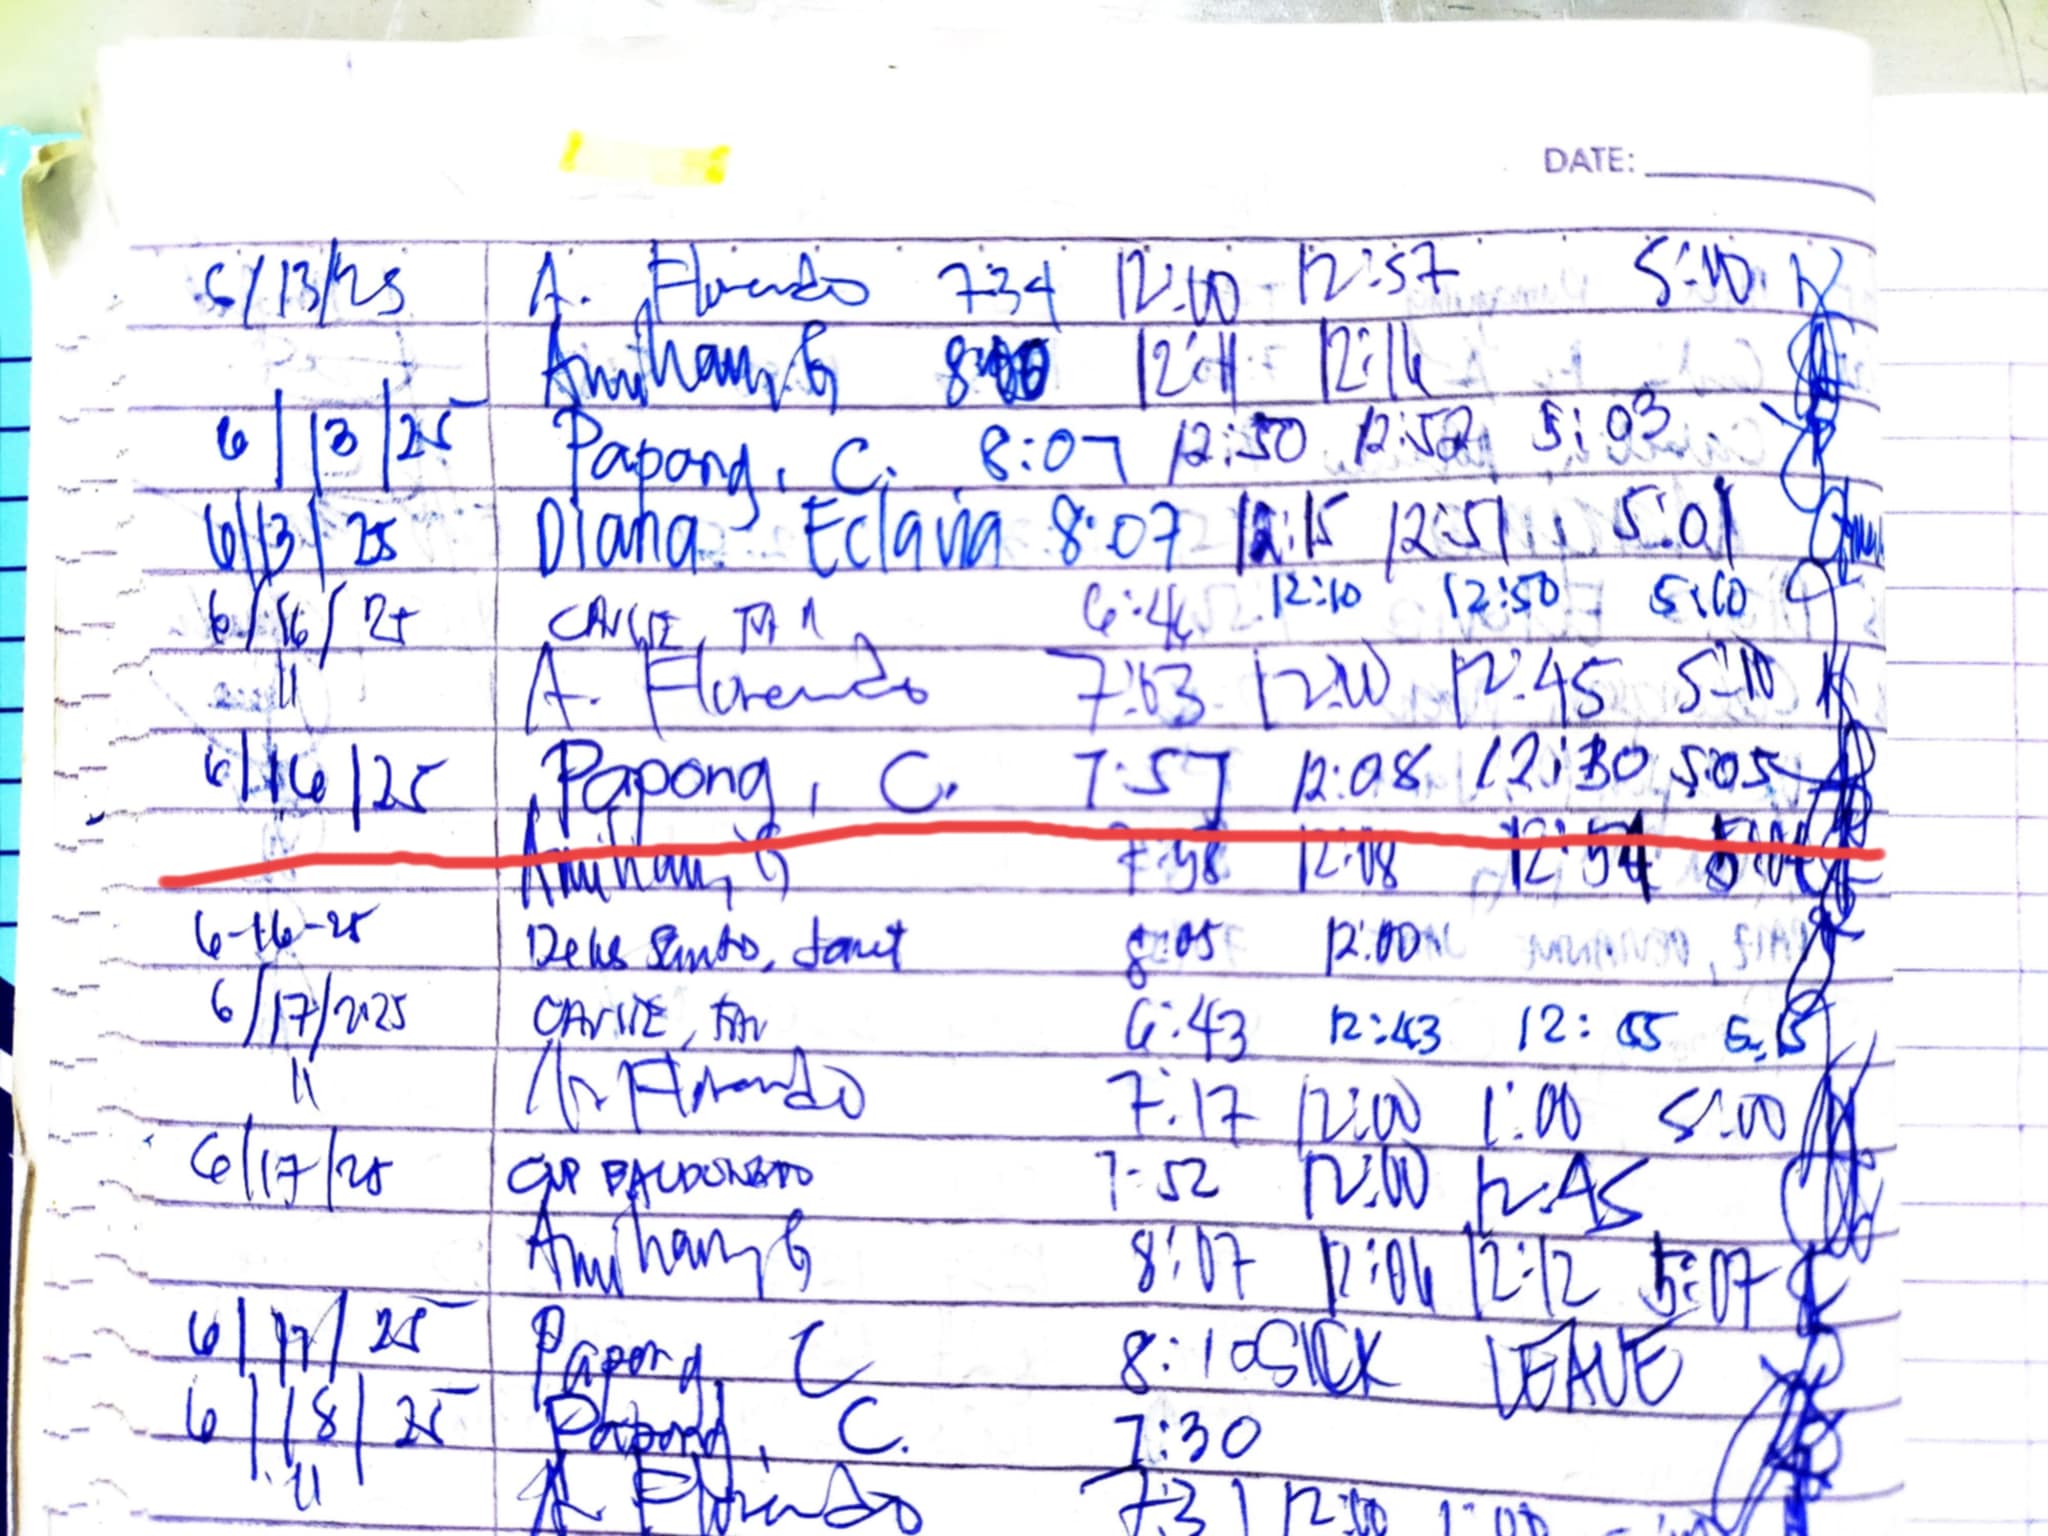 DATE:
6/13/25 A. Florendo 7:34 12:00 12:57 5:10
Amihan, G 8:00 12:11 12:14
6/13/25 Papong, C. 8:07 12:50 12:52 5:03
6/13/25 Diana Eclavia 8:07 12:15 12:51 5:01
6/16/25 12:10 12:50 5:10
11 A. Florendo 7:03 12:00 12:45 5:10
6/16/25 Papong, C. 7:57 12:08 12:30 5:05
Amihan, G 7:58 12:08 12:54 5:04
6-16-25 8:05 12:00
6/17/2025 6:43 12:43 12:55 5:15
11 A. Florendo 7:17 12:00 1:00 5:00
6/17/25 7:52 12:00 12:45
Amihan, G 8:07 12:06 12:12 5:07
6/17/25 Papong C 8:10 SICK LEAVE
6/18/25 Papong, C. 7:30
11 A. Florendo 7:31